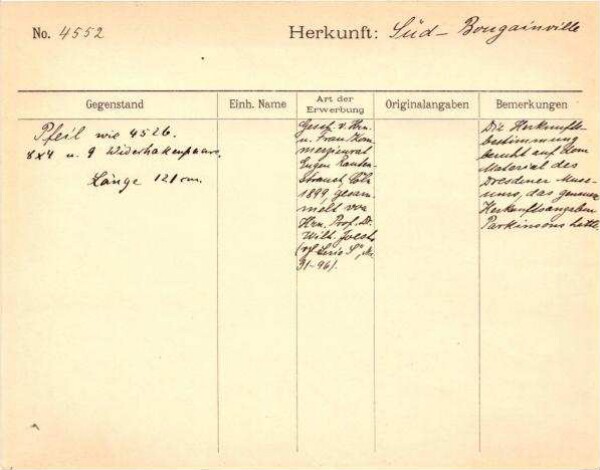 No. 4552
Herkunft: Süd-Bougainville
Gegenstand
Einh. Name
Art der Erwerbung
Originalangaben
Bemerkungen
Pfeil wie 4526.
8x4 u. 9 Widerhakenpaare.
Länge 121 cm.
Gesch. v. Hrn.
u. Frau Kom-
merzienrat
Eugen Rauten-
strauch Cöln
1899 gesam-
melt von
Hrn. Prof. Dr.
Wilh. Joest
31-96).
Die Herkunfts-
bestimmung
beruht auf dem
Material des
Dresdener Muse-
ums, das genaue
Herkunftsangaben
Parkinsons hatte.